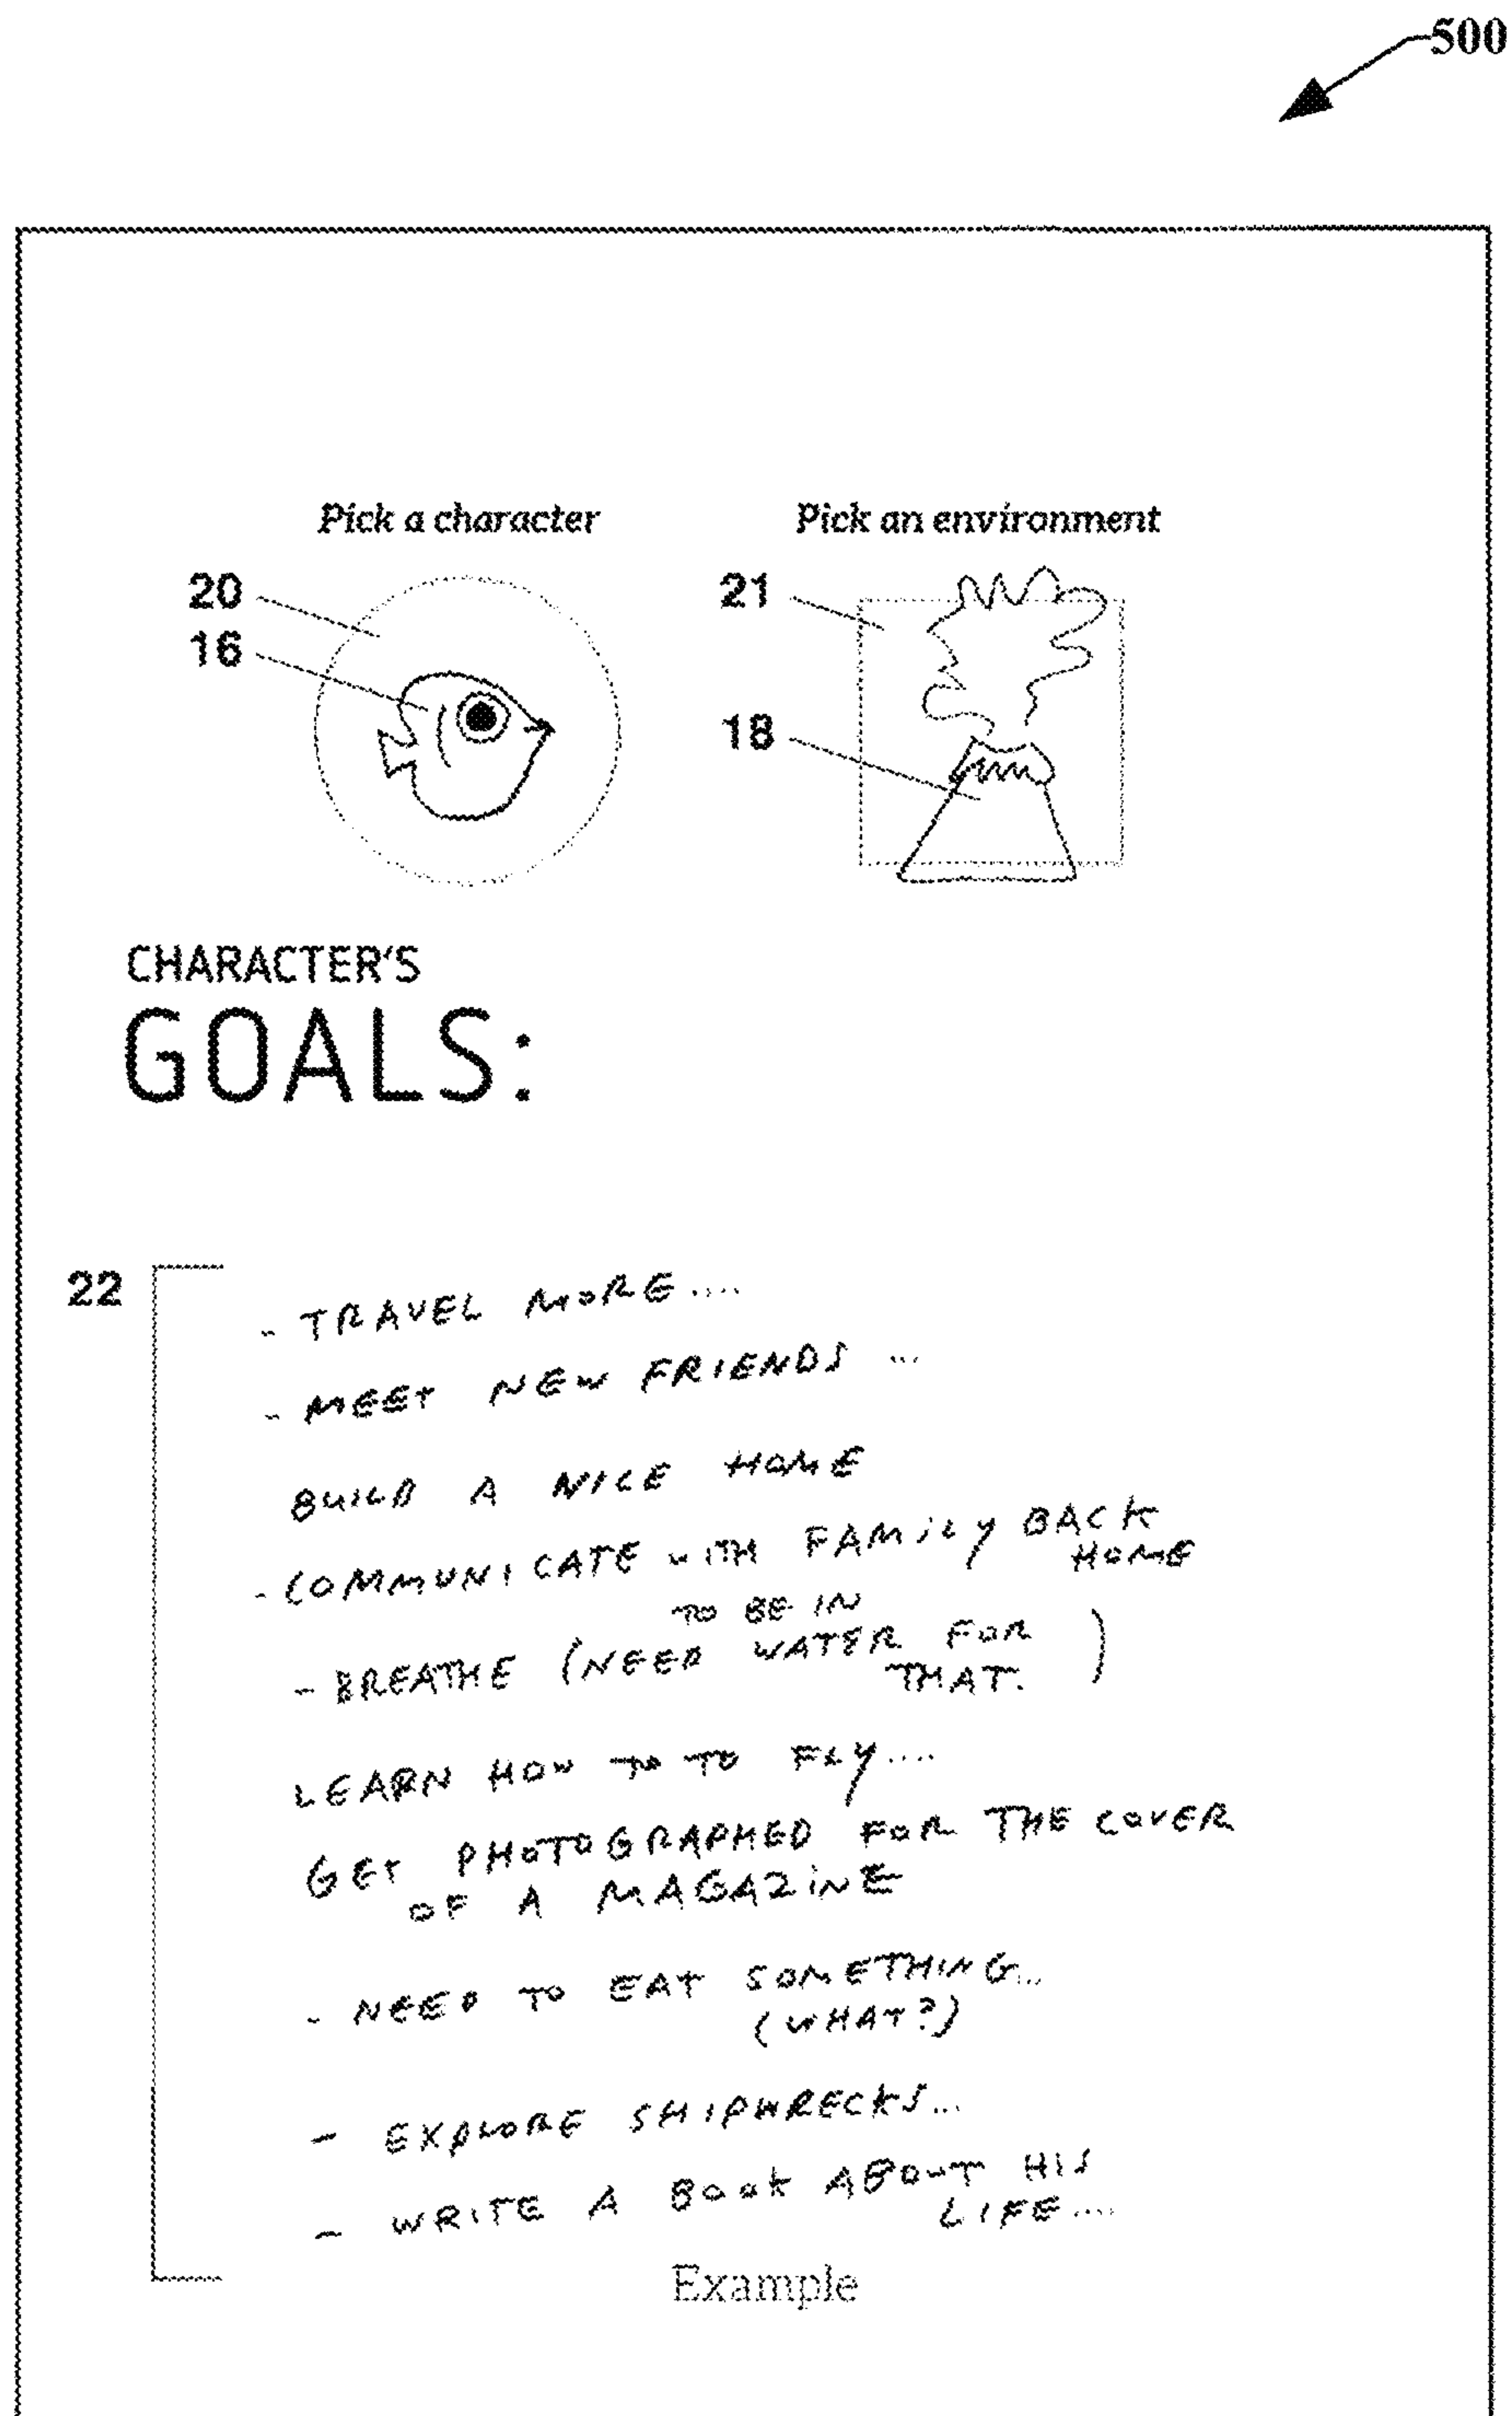 500
Pick a character
Pick an environment
20
16
21
18
CHARACTER'S
GOALS:
22
- TRAVEL MORE....
- MEET NEW FRIENDS ...
BUILD A NICE HOME
- COMMUNICATE WITH FAMILY BACK
HOME
TO BE IN
- BREATHE (NEED WATER FOR
THAT. )
LEARN HOW TO TO FLY....
GET PHOTOGRAPHED FOR THE COVER
OF A MAGAZINE
- NEED TO EAT SOMETHING...
(WHAT?)
- EXPLORE SHIPWRECKS...
- WRITE A BOOK ABOUT HIS
LIFE....
Example